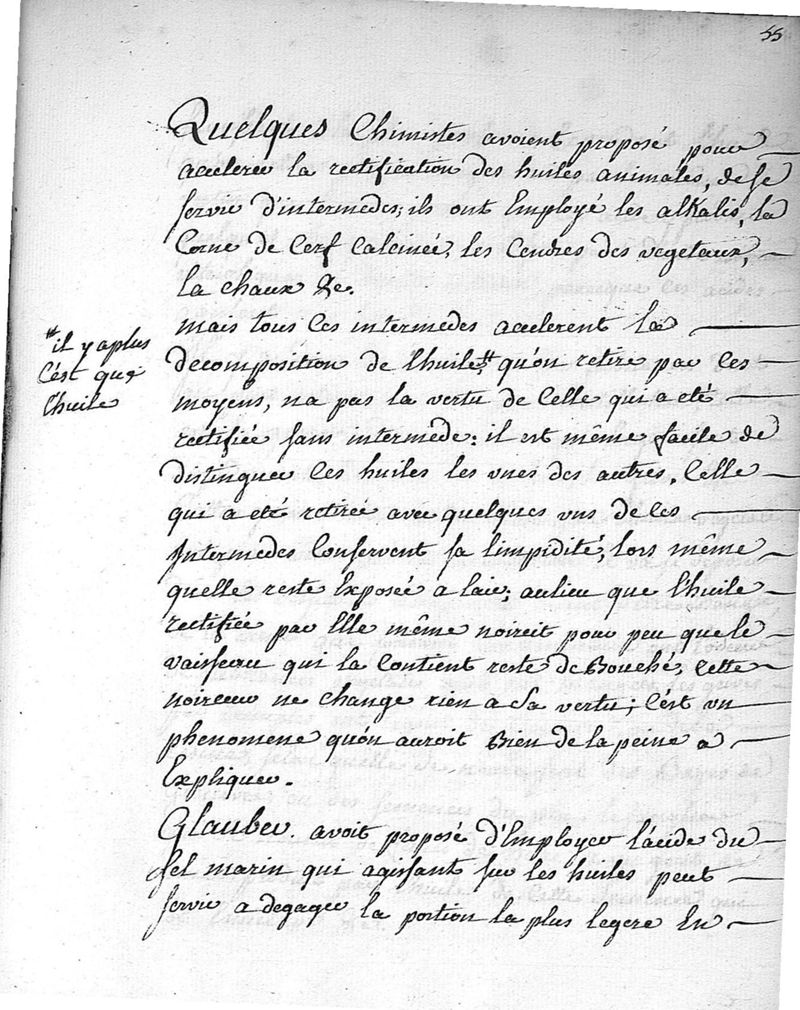 55
Quelques Chimistes avoient proposé pour
accelerer la rectification des huiles animales, de se
servir d'intermedes; ils ont Employé les alkalis, la
Corne de Cerf Calcinée, les Cendres des vegetaux,
la chaux &c.
mais tous Ces intermedes accelerent la
decomposition de l'huile # qu'on retire par Ces
moyens, na pas la vertu de Celle qui a eté
rectifiée sans intermede: il est même facile de
distinguer Ces huiles les unes des autres, Celle
qui a eté retirée avec quelques uns de Ces
Intermedes Conservent sa limpidité, lors même
quelle reste Exposée a lair; aulieu que l'huile
rectifiée par Elle même noircit pour peu que le
vaisseau qui la Contient reste deBouché, Cette
noirceur ne change rien a Sa vertu; C'ést un
phenomene qu'on auroit Bien de la peine a
Expliquer.
Glauber avoit proposé d'Employer l'acide du
sel marin qui agissant sur les huiles peut
servir a degager la portion la plus legere En
# il y a plus
C'est que
l'huile